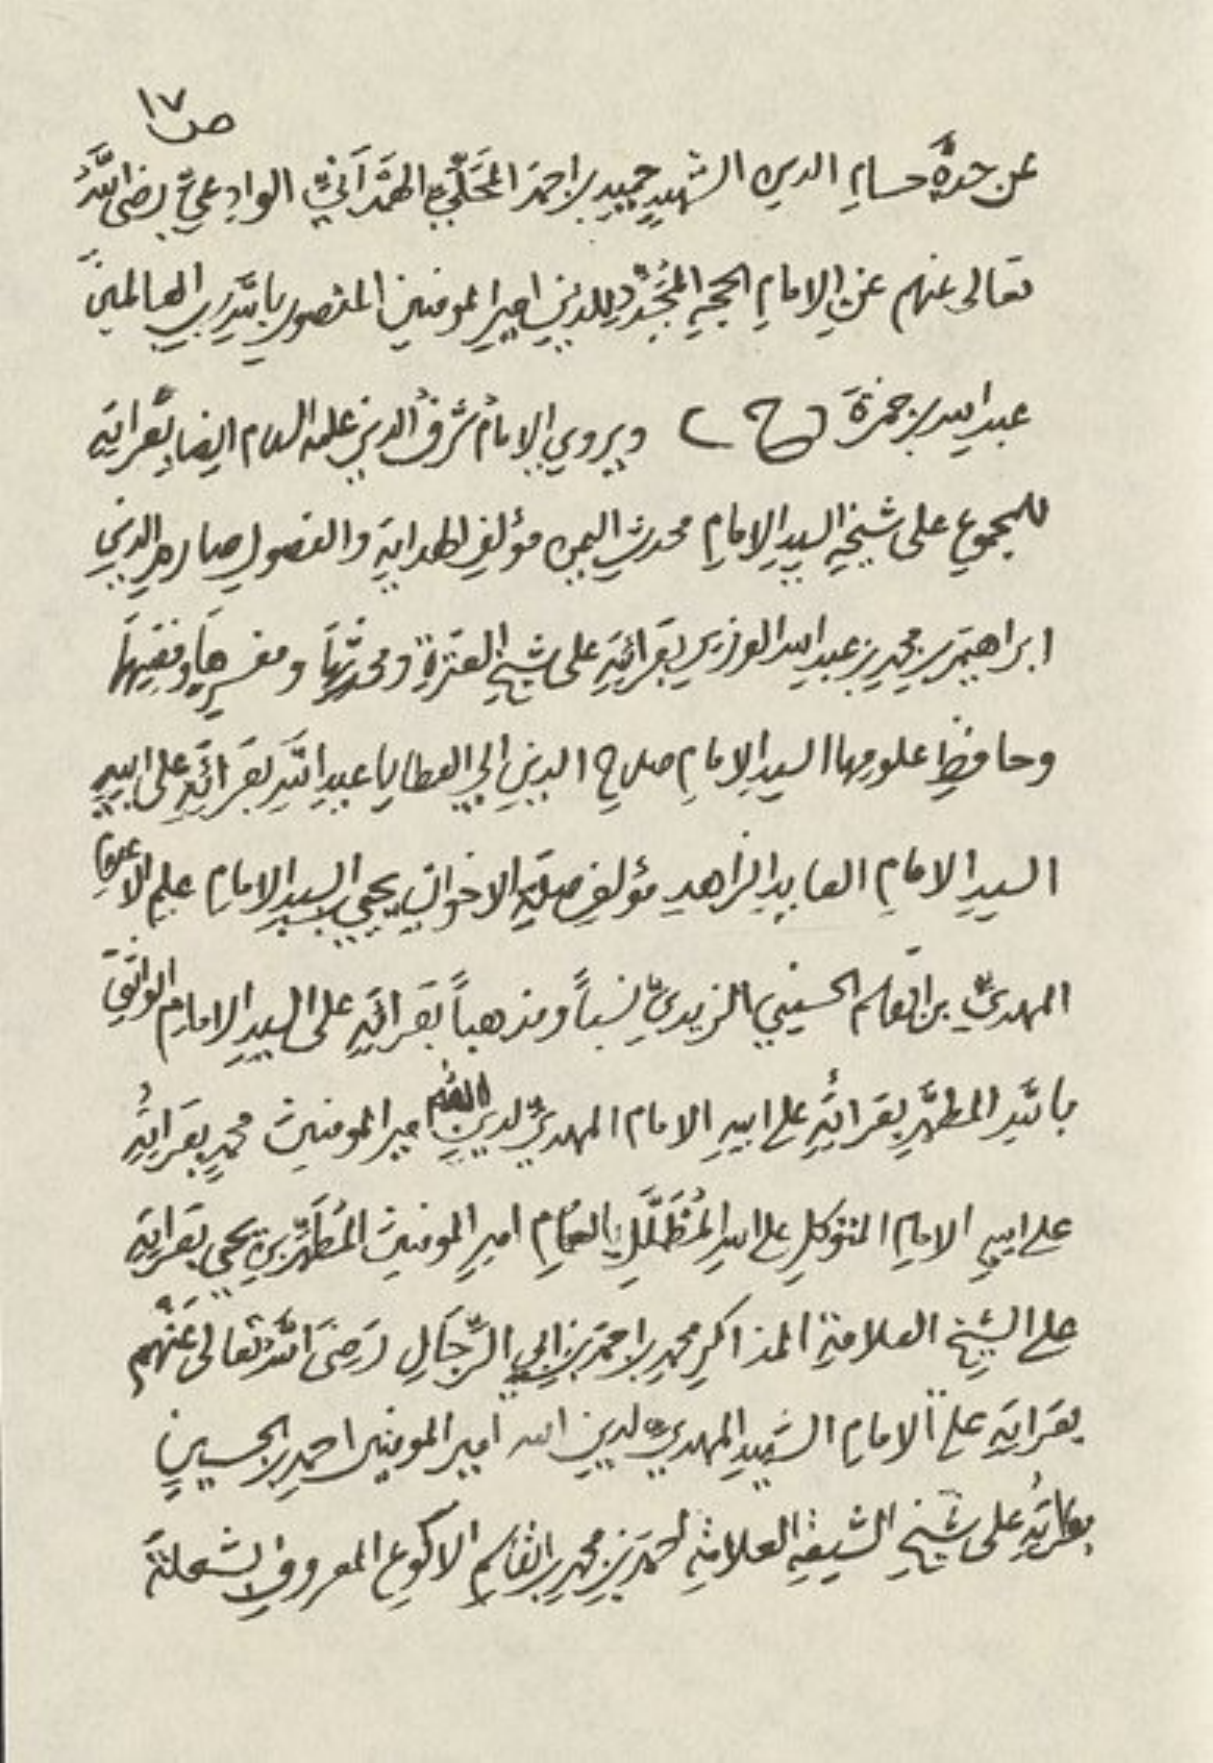 ص ١٧
عن جده حسام الدين الشهيد حميد بن احمد المحَلِّيِّ الهَمْدَانيِّ الوادعيِّ رضي اللهُ
تعالى عنهم عن الامامِ الحجةِ المُجَدِّدِ للدينِ امير المومنين المنصور باللهِ ربِ العالمينَ
عبد الله بن حمزة (ح) ويروي الامامُ شرفُ الدين عليه السلام ايضا بقرايته
للمجموع على شيخهِ السيد الامامِ محدث اليمن مؤلفِ الهدايةِ والفصول صارم الدينِ
ابراهيم بن محمد بن عبد الله الوزير بقرائتِهِ على شيخ العترةِ ومحدثِها ومفسرِها وفقيهِهَا
وحافظِ علومِها السيد الامامِ صلاح الدين ابي العطايا عبد اللهِ بقرائتِهِ على ابيهِ
السيدِ الامامِ العابدِ الزاهدِ مؤلفِ صلةِ الاخوان يحيى السيد الامامِ علم الاعلامِ
المهديِّ بن القاسم الحسيني الزيديِّ نسباً ومذهباً بقرائتِهِ على السيد الامامِ الواثقِ
باللهِ المطهَّرِ بقرائتِهِ على ابيهِ الامام المهديِّ لدينِ اللهِ امير المومنين محمدٍ بقرايتِهِ
على ابيهِ الامامِ المتوكلِ على اللهِ المُظَلَّلِ بالغمامِ اميرِ المومنين المُطَهَّرِ بن يحيى بقرايتِهِ
على الشيخ العلامةِ المذاكرِ محمدِ بن احمدَ بنِ ابي الرِّجَالِ رَضِيَ اللهُ تعالى عَنْهُم
بقرايتِهِ على الامامِ الشهيدِ المهديِّ لدينِ الله امير المومنين احمدِ بن الحسينِ
بقرائتِهِ على شيخِ الشيعةِ العلامةِ احمدَ بنِ محمدِ بن القاسم الاكوعِ المعروفِ بشعلةَ